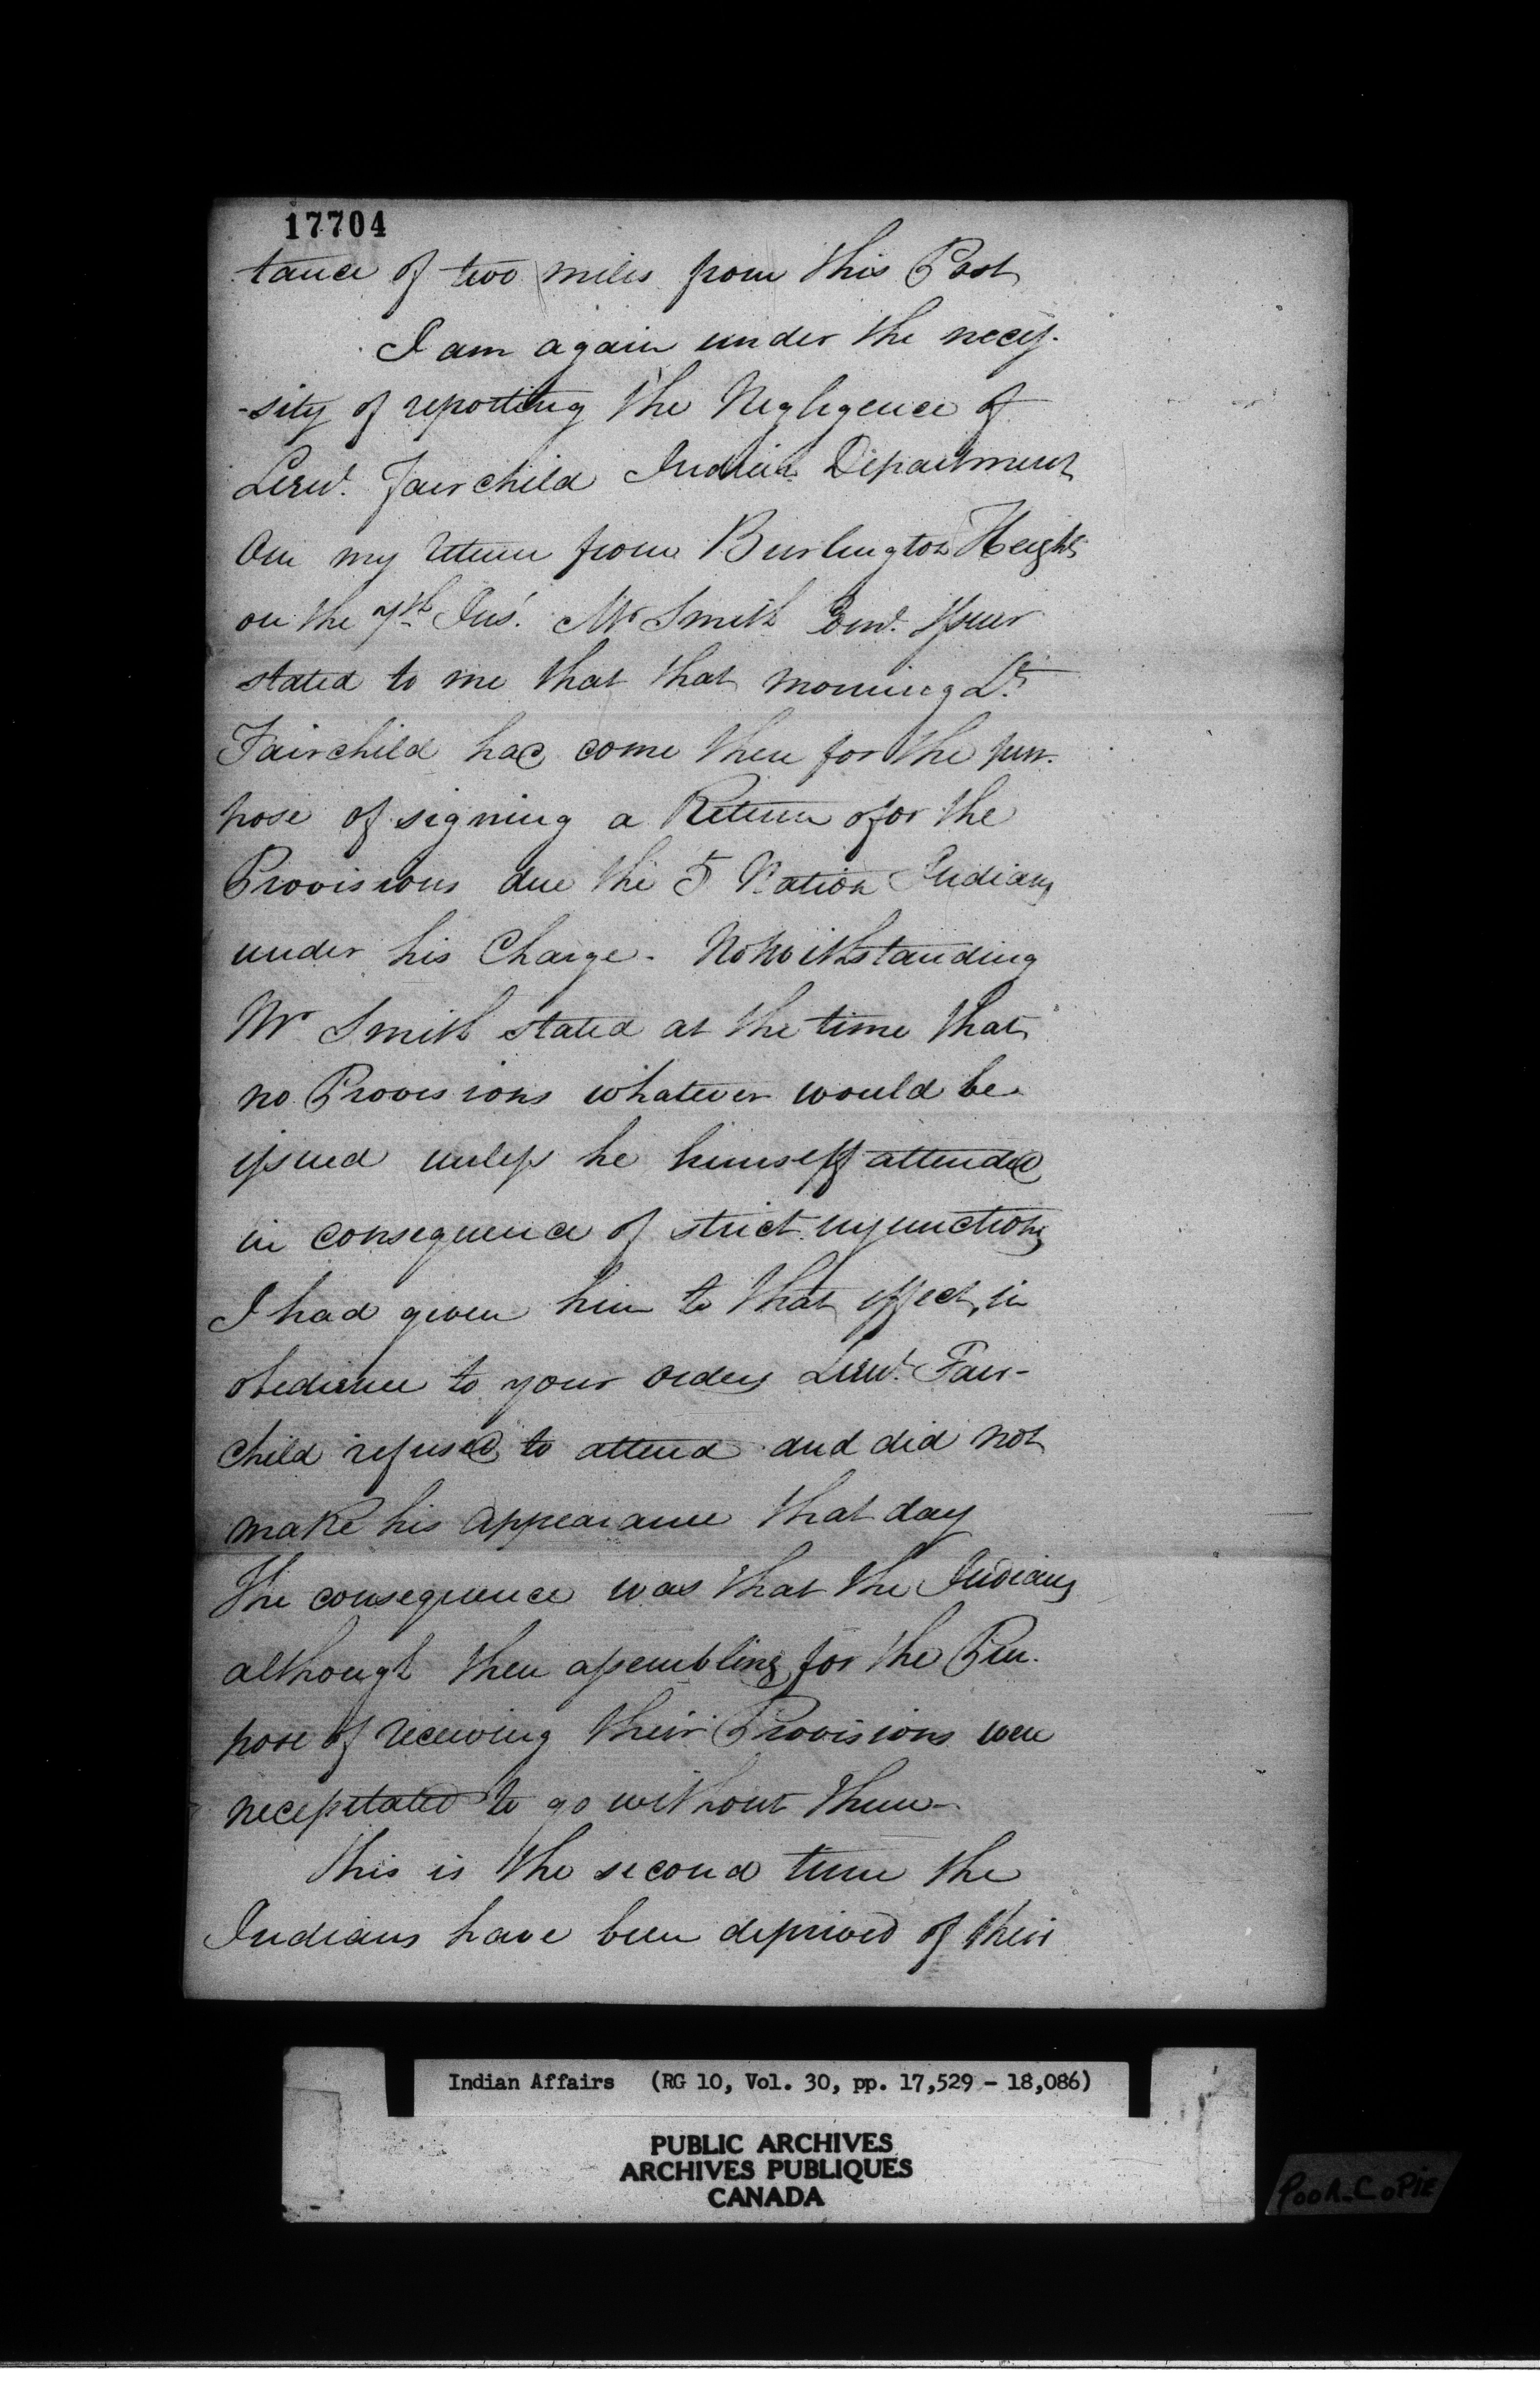 17704
tance of two miles from this Post
I am again under the neces-
-sity of reporting the Negligence of
Lieut. Fairchild Indian Department
On my return from Burlington Heights
on the 7th Inst. Mr Smith
stated to me that that morning Lt
Fairchild had come there for the pur-
pose of signing a Return for the
Provisions due the 5 Nation Indians
under his Charge. Notwithstanding
Mr Smith stated at the time that
no Provisions whatever would be
issued unless he himself attended
in consequence of strict injunctions
I had given him to that effect, in
obedience to your orders Lieut. Fair-
child refused to attend and did not
make his appearance that day
The consequence was that the Indians
although then assembling for the Pur-
pose of receiving their Provisions were
necessitated to go without them-
This is the second time the
Indians have been deprived of their
Indian Affairs (RG 10, Vol. 30, pp. 17,529 - 18,086)
PUBLIC ARCHIVES
ARCHIVES PUBLIQUES
CANADA
POOR-COPIE